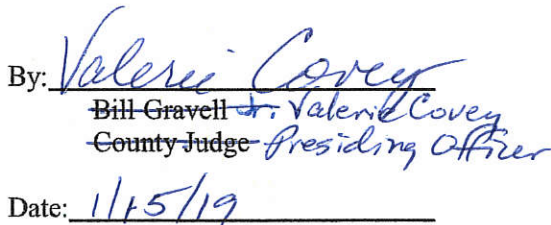 By: Valerie Covey
Bill Gravell Jr. Valerie Covey
County Judge Presiding Officer
Date: 1/15/19